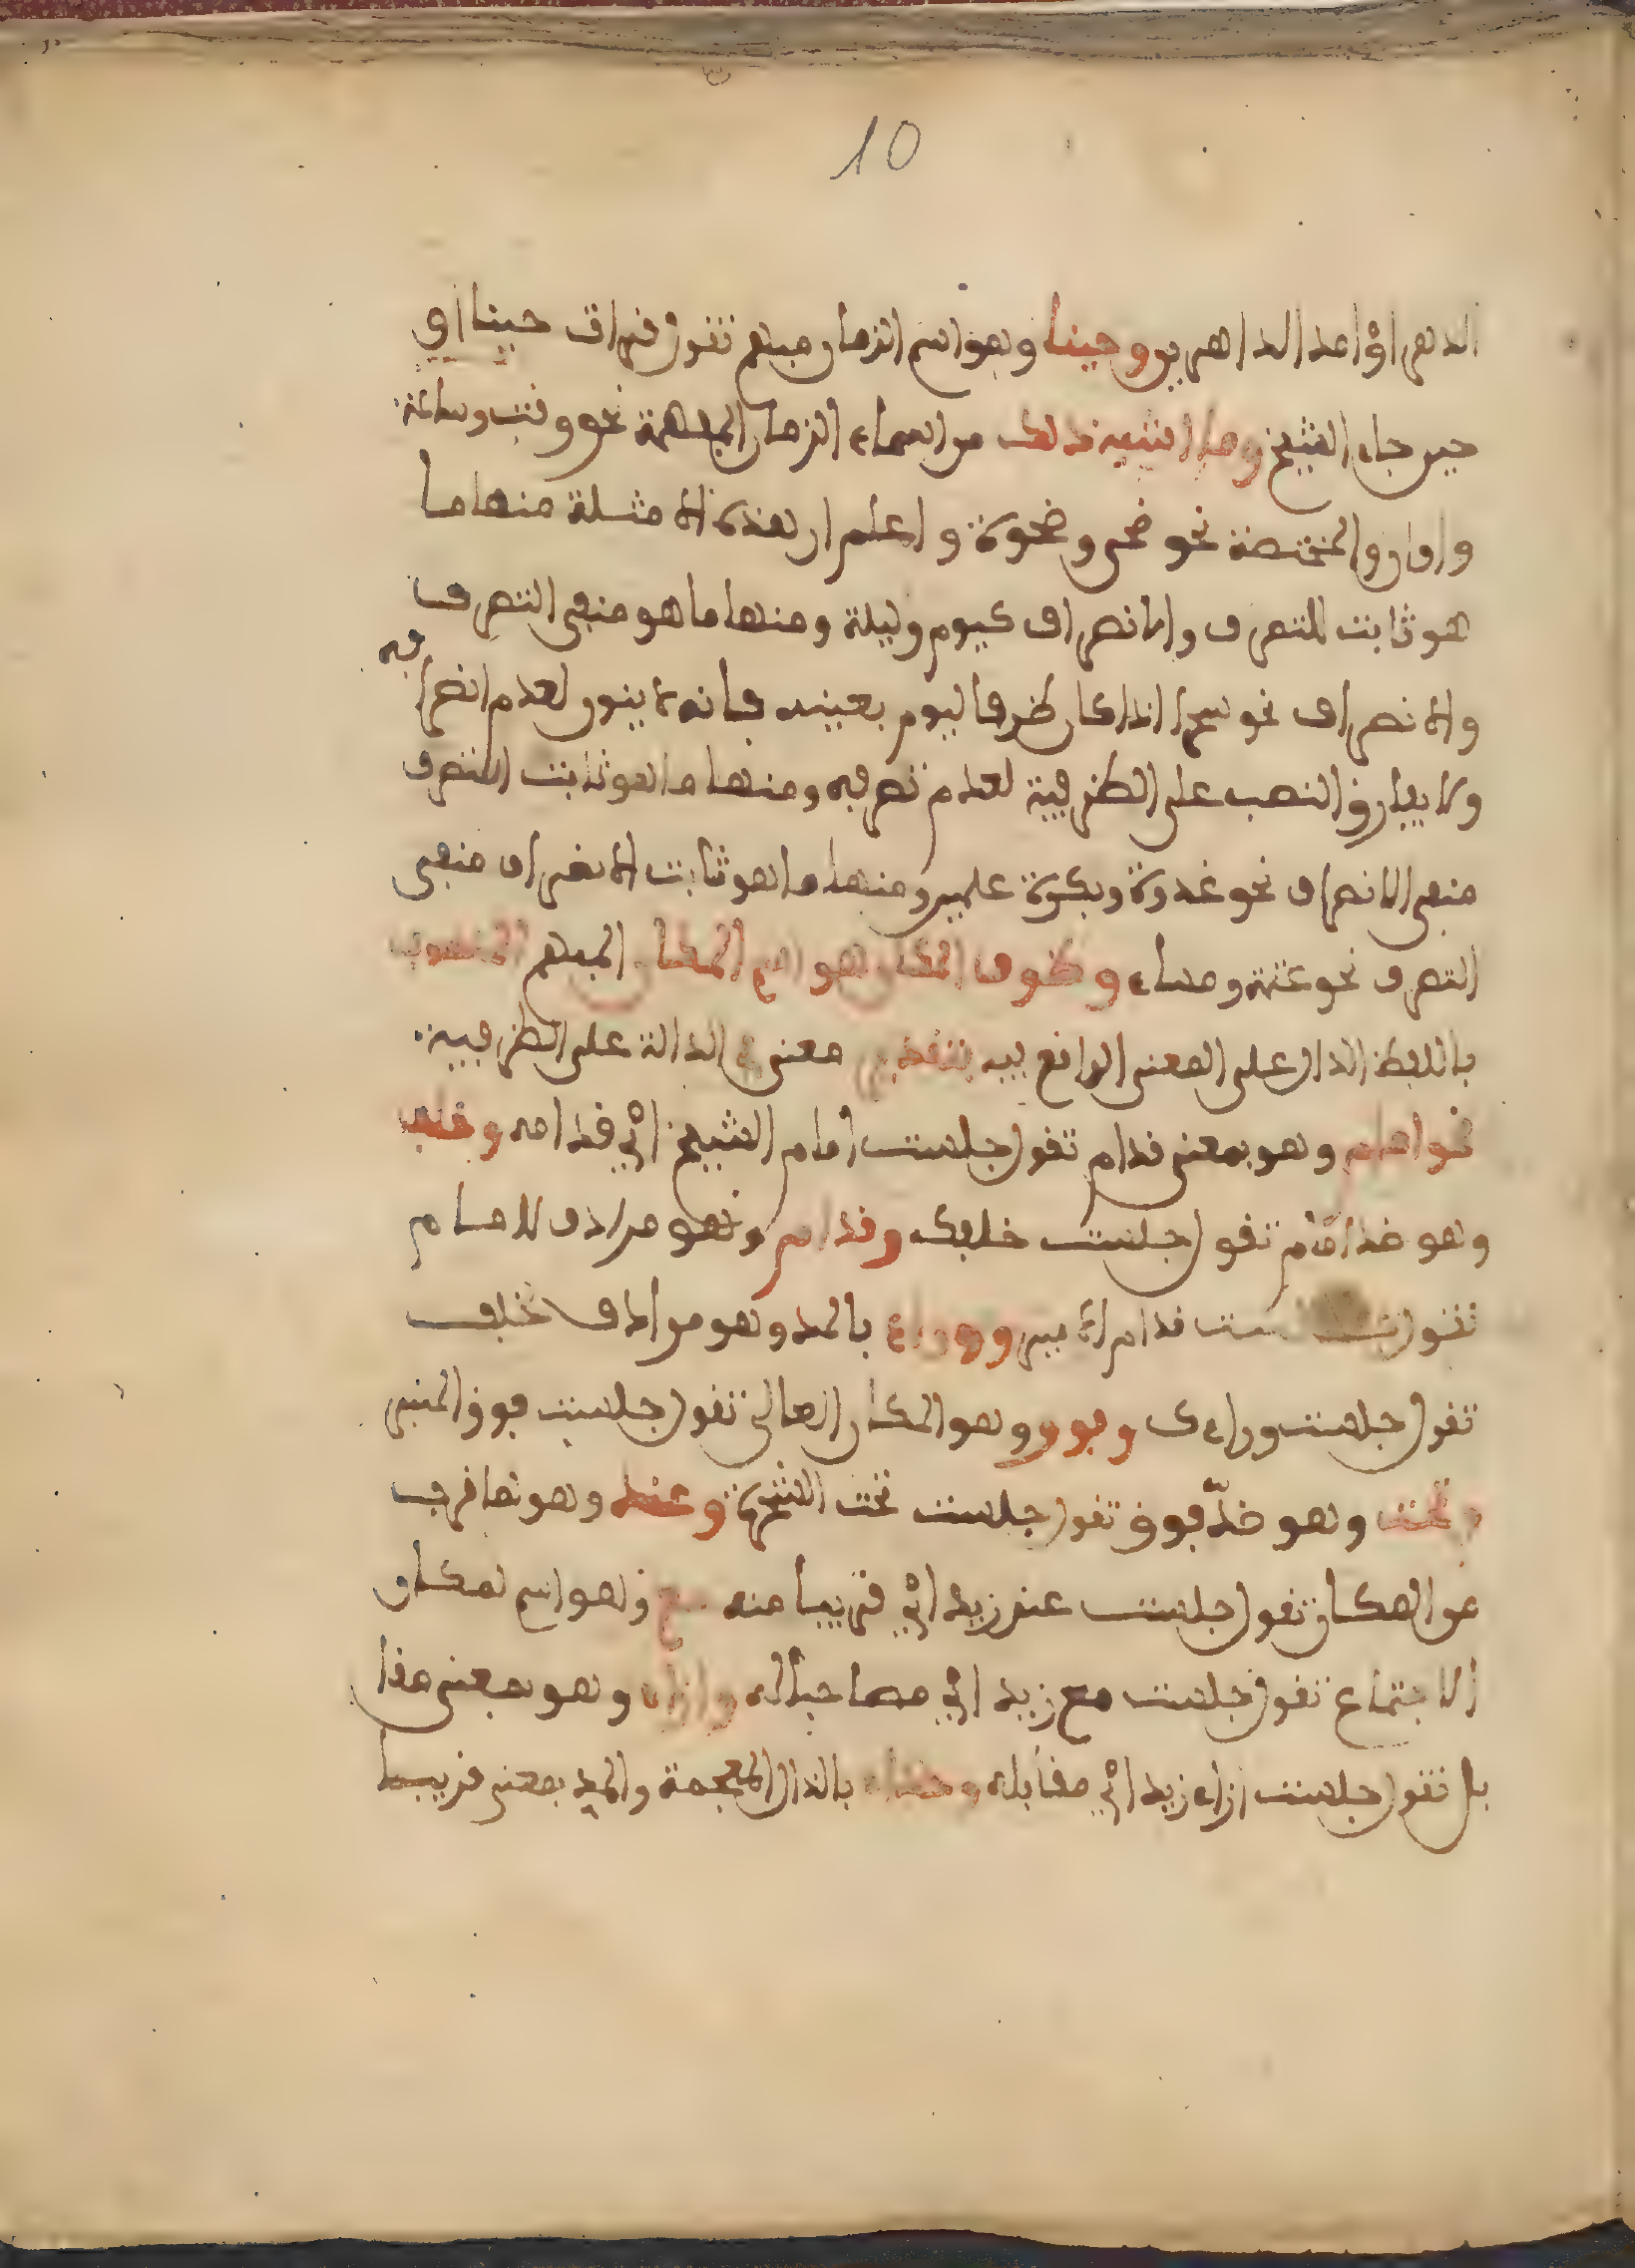 10
الدهر اوٴ امد الداهرين وحينا وهو اسم الزمان مبهم تقول قرات حينا اي
حين جاء الشيخ وما اشبه ذلك من اسماء الزمان المبهمة نحو وقت وساعة
واوان والمختصة نحو ضحى وضحوة واعلم ان هذه الامثلة منها ما
هو ثابت للتصرف والانصراف كيوم وليلة ومنها ما هو منفي التصرف
والانصراف نحو سحر اذا كان ظرفا ليوم بعينه فانه لا ينون لعدم انصرا
فه
ولا يفارق النصب على الظرفية لعدم تصرفه ومنها ما هو ثابت التصرف
منفي الانصراف نحو غدوة وبكرة علمين ومنها ما هو ثابت الانصراف منفي
التصرف نحو عتمة ومساء وظرف المكان هو اسم المكان المبهم المنصوب
باللفظ الدال على المعنى الواقع فيه بتقدير معنى في الدالة على الظرفية
نحو امام وهو بمعنى قدام تقول جلست امام الشيخ اي قدامه وخلف
وهو ضد امام تقول جلست خلفك وقدام وهو مرادف للامام
تقول جلست قدام الامير ووراء بالمد وهو مرادف لخلف
تقول جلست وراءك وفوق وهو المكان العالي تقول جلست فوق المنبر
وتحت وهو ضدّ فوق تقول جلست تحت الشجرة وعند وهو لما قرب
من المكان تقول جلست عند زيد اي قريبا منه ومع وهو اسم لمكان
الاجتماع تقول جلست مع زيد اي مصاحبا له وازاء وهو بمعنى مقا
بل تقول جلست ازاء زيد اي مقابله وحذاء بالذال المعجمة والمد بمعنى قريبا